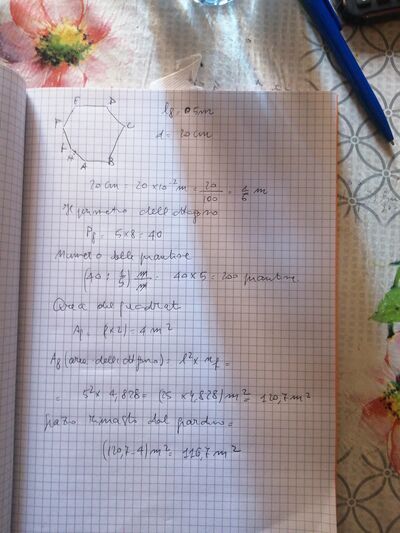 E D
l8 = 05m
F C
d = 20 cm
F
H A B
20cm = 20 x 10⁻² m = 20/100 = 1/5 m
Il perimetro dell'ottagono
P8 = 5 x 8 = 40
Numero delle piantine
(40 : 1/5) m/m = 40 x 5 = 200 piantine
Area del quadrat
A = (2 x 2) = 4 m²
A8 (area dell'ottagono) = l² x nf =
= 5² x 4,828 = (25 x 4,828) m² = 120,7 m²
rimasto dal giardino =
(120,7 - 4) m² = 116,7 m²